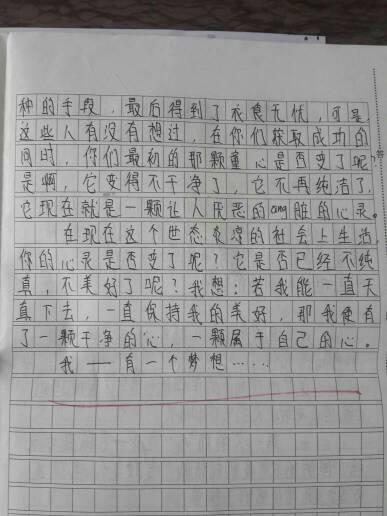 种的手段，最后得到了衣食无忧，可是，
这些人有没有想过，在你们获取成功的
同时，你们最初的那颗童心是否变了呢？
是啊，它变得不干净了，它不再纯洁了，
它现在就是一颗让人厌恶的ang脏的心灵。
在现在这个世态炎凉的社会上生活，
你的心灵是否变了呢？它是否已经不纯
真，不美好了呢？我想：若我能一直天
真下去，一直保持我的美好，那我便有
了一颗干净的心，一颗属于自己的心。
我——有一个梦想……